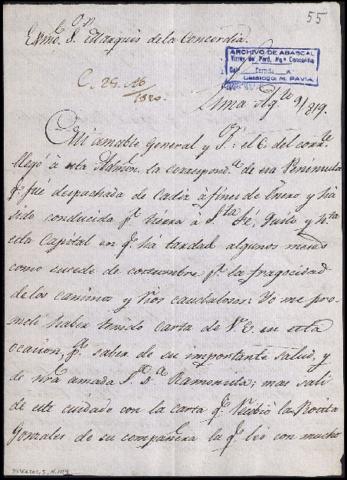 55
Exmo. Sor. Marques de la Concordia
ARCHIVO DE ABASCAL
Virrey del Perú, Mqs Concordia
CATALOGO M. PAVIA
C. 29. 16
1820.
Lima Agto 9/819.
Mi amable general y Sr.: el 6 del corrte.
llegó a esta Admon. la correspond.a de esa Peninsula
qe fué despachada de Cadiz à fines de Enero y ha
sido conducida pr. tierra à Sta Fé, Quito y hta
esta Capital en qe. ha tardado algunos meses
como sucede de costumbre pr. la fragocidad
de los caminos y rios caudalosos. Yo me pro-
metí haber tenido carta de V.E. en esta
ocacion, pa. saber de su importante salud, y
de ntra amada Sa. Da. Ramonsita; mas sali
de este cuidado con la carta qe. recibió la Rosita
Gonzales de su compañera la qe. leo con mucho